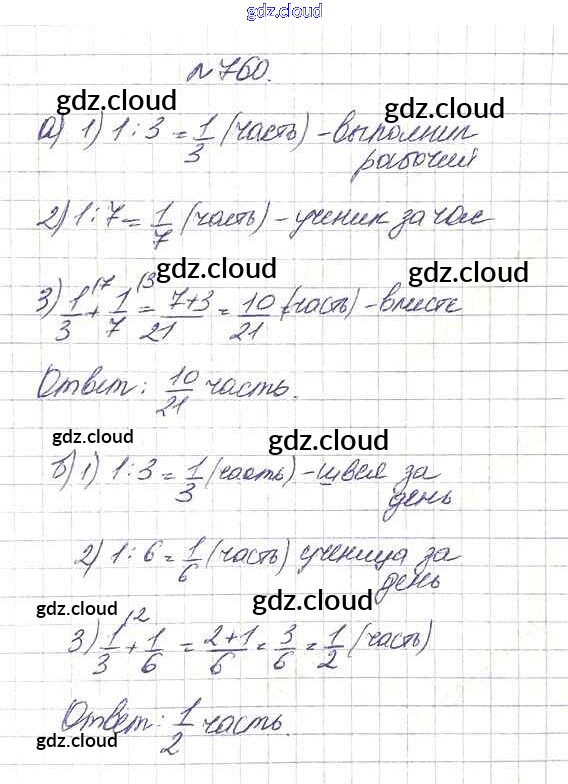 gdz.cloud
gdz.cloud
№760.
gdz.cloud
gdz.cloud
а) 1) 1:3 = 1/3 (часть) – выполнил
рабочий
2) 1:7 = 1/7 (часть) – ученик за час
gdz.cloud
gdz.cloud
3) 1/3 (7 + 1/7 (3 = 7+3/21 = 10/21 (часть) – вместе
Ответ: 10/21 часть.
gdz.cloud
gdz.cloud
б) 1) 1:3 = 1/3 (часть) – швея за
день
2) 1:6 = 1/6 (часть) ученица за
день
gdz.cloud
gdz.cloud
3) 1/3 (2 + 1/6 = 2+1/6 = 3/6 = 1/2 (часть)
Ответ: 1/2 часть.
gdz.cloud
gdz.cloud